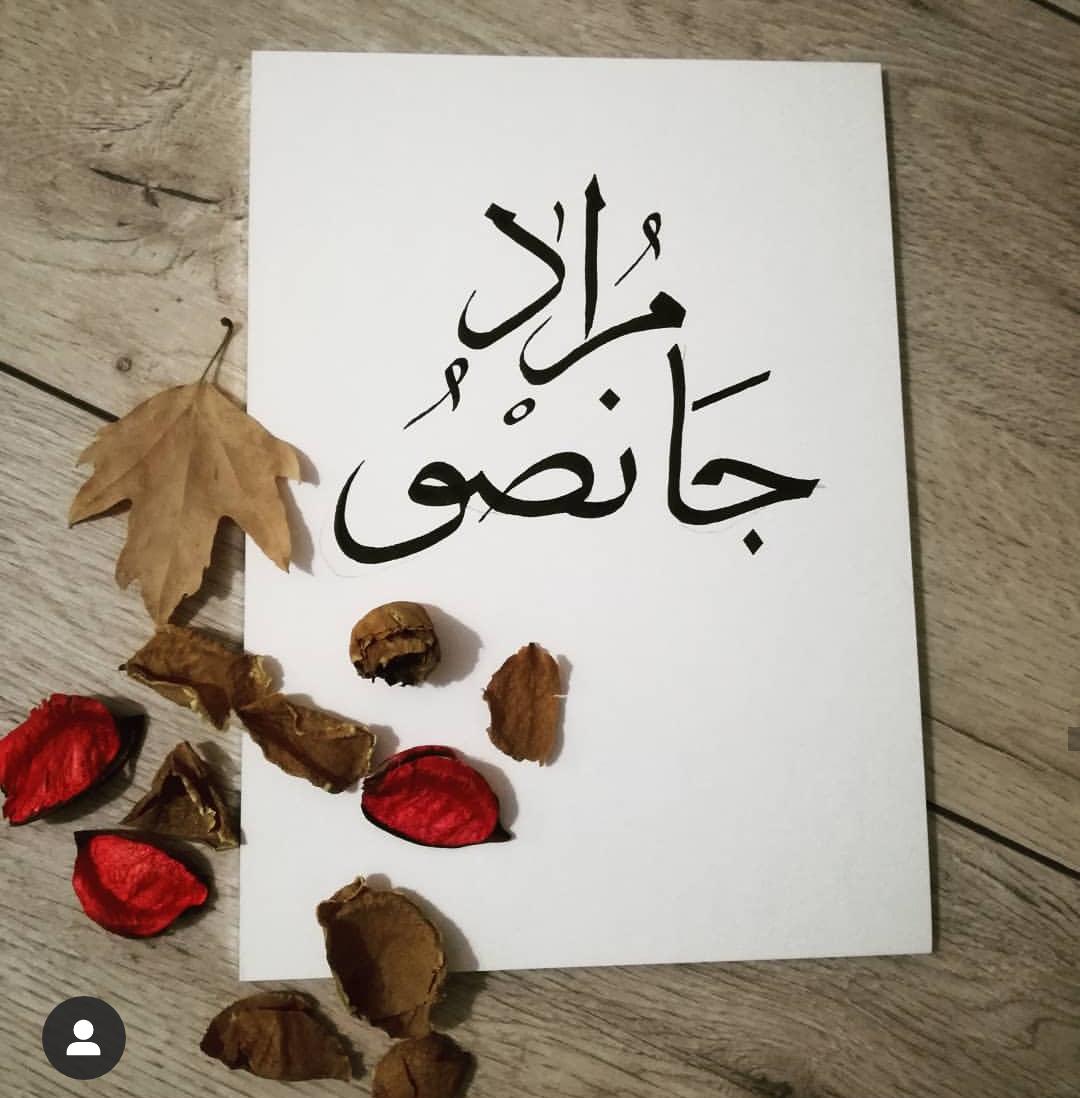 مُراد
جَانصْوُ